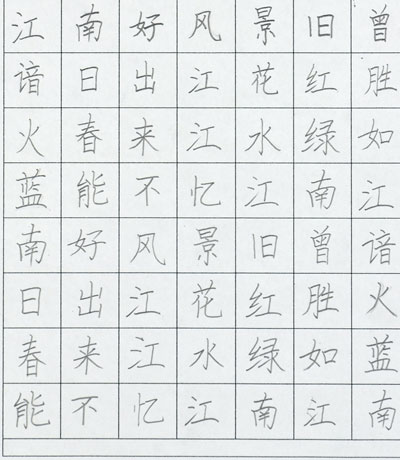 江南好风景旧曾
谙日出江花红胜
火春来江水绿如
蓝能不忆江南江
南好风景旧曾谙
日出江花红胜火
春来江水绿如蓝
能不忆江南江南